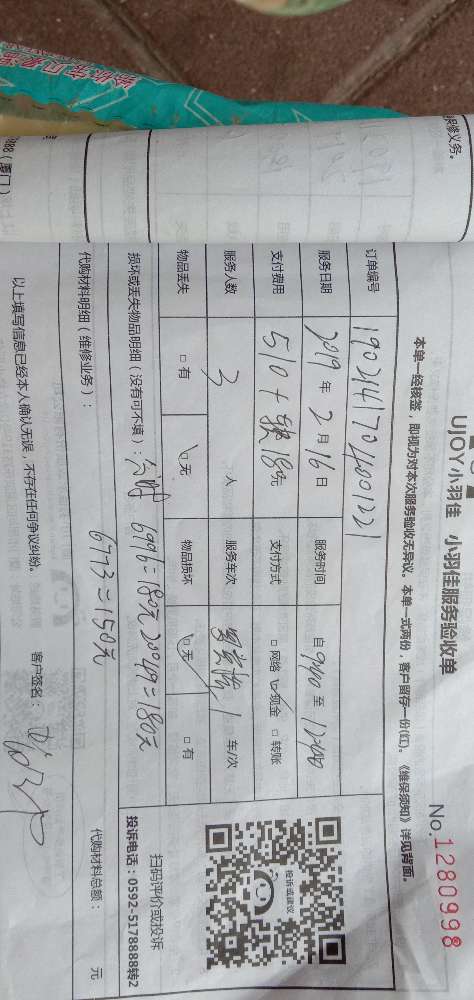 UJOY小羽佳 小羽佳服务验收单
No.1280998
本单一经核签，即视为对本次服务验收无异议。本单一式两份，客户留存一份(红)。《维保须知》详见背面。
订单编号 1902141704001221
服务日期 2019 年 2 月 16 日 服务时间 自 9:40 至 12:40
支付费用 510+ 18元 支付方式 □网络 ☑现金 □转账
服务人数 3 人 服务车次 1 车/次
物品丢失 □有 ☑无 物品损坏 ☑无 □有
损坏或丢失物品明细（没有可不填）： 6991=180元 20949=180元
6773=150元
代购材料明细（维修业务）：
代购材料总额： 元
以上填写信息已经本人确认无误，不存在任何争议纠纷。
客户签名：
投诉或建议
扫码评价或投诉
投诉电话：0592-5178888转2
保修义务。
888（厦门）